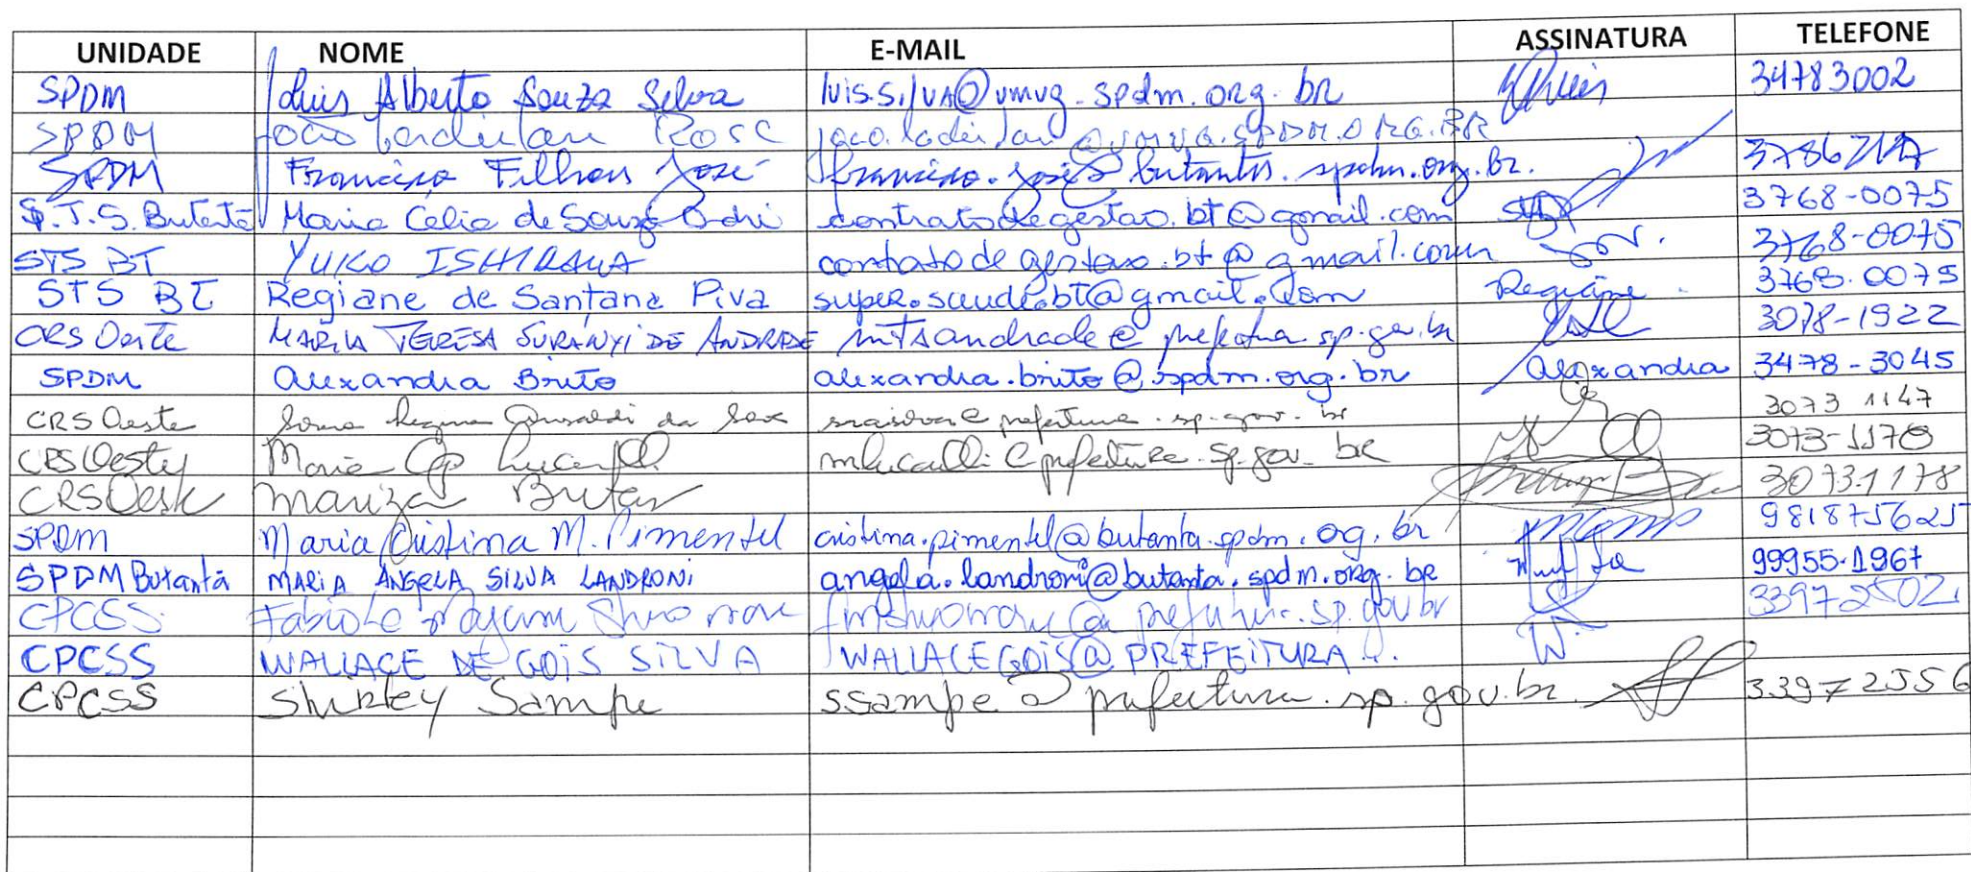 UNIDADE NOME E-MAIL ASSINATURA TELEFONE
SPDM Luis Alberto Souza Silva luis.silva@vmvg.spdm.org.br 34783002
SPDM João
SPDM Francisco Filhou José francisco.jose@butanta.spdm.org.br.
S.T.S. Butantã Maria Célia de Souza contratodegestao.bt@gmail.com 3768-0075
STS BT YUKO ISHIHARA contratodegestao.bt@gmail.com 3768-0075
STS BT Regiane de Santana Piva super.saude.bt@gmail.com Regiane 3768.0075
CRS Oeste MARIA TERESA SURANYI DE ANDRADE mtsandrade@prefeitura.sp.gov.br 3078-1922
SPDM Alexandra Brito alexandra.brito@spdm.org.br Alexandra 3478-3045
CRS Oeste Regina da 3073 1147
CRS Oeste Maria mlucaelli@prefeitura.sp.gov.br 3073-1178
CRS Oeste Mariza 30731178
SPDM Maria Cristina M. Pimentel cristina.pimentel@butanta.spdm.org.br 981875625
SPDM Butantã MARIA ANGELA SILVA LANDRONI angela.landroni@butanta.spdm.org.br 99955-1967
CPCSS 33972502
CPCSS WALLACE DE GOIS SILVA WALLACEGOIS@PREFEITURA W.
CPCSS Shirley Sampe ssampe@prefeitura.sp.gov.br. 33972556